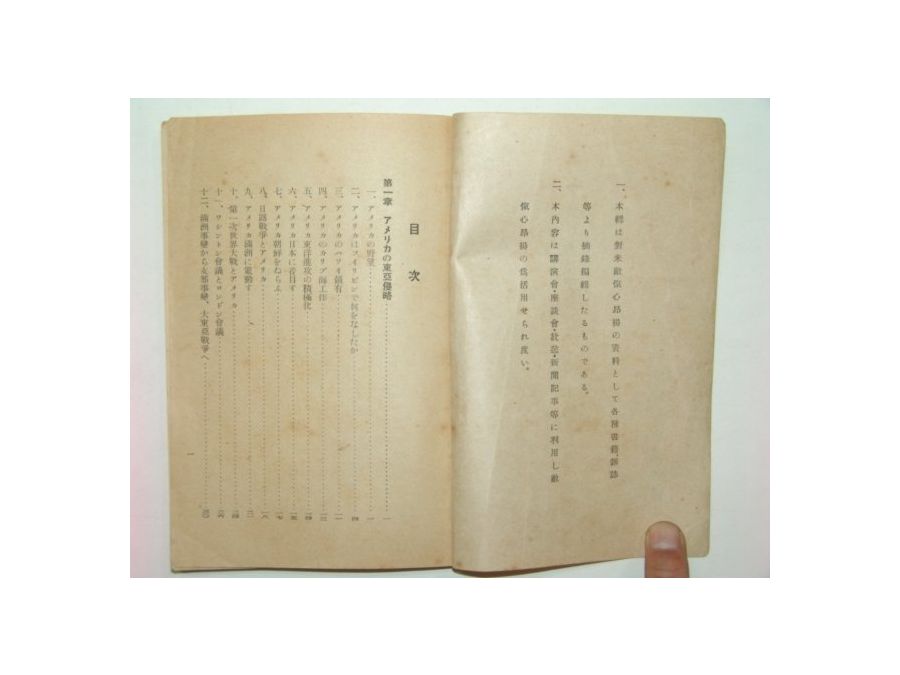 一、本輯は對米敵愾心昂揚の資料として各種書籍、雜誌
等より摘錄編輯したるものである。
二、本內容は講演會・座談會・新聞記事等に利用し敵
愾心昂揚の爲活用せられ度い。
目次
第一章 アメリカの東亞侵略
一、アメリカの野望
二、アメリカはフイリピンで何をなしたか
三、アメリカのハワイ領有
四、アメリカのカリブ海工作
五、アメリカ東洋進攻の積極化
六、アメリカ日本に着目す
七、アメリカ朝鮮をねらふ
八、日露戰爭とアメリカ
九、アメリカ滿洲に電動す
十、第一次世界大戰とアメリカ
十一、ワシントン會議とロンドン會議
十二、滿洲事變から支那事變、大東亞戰爭へ
一